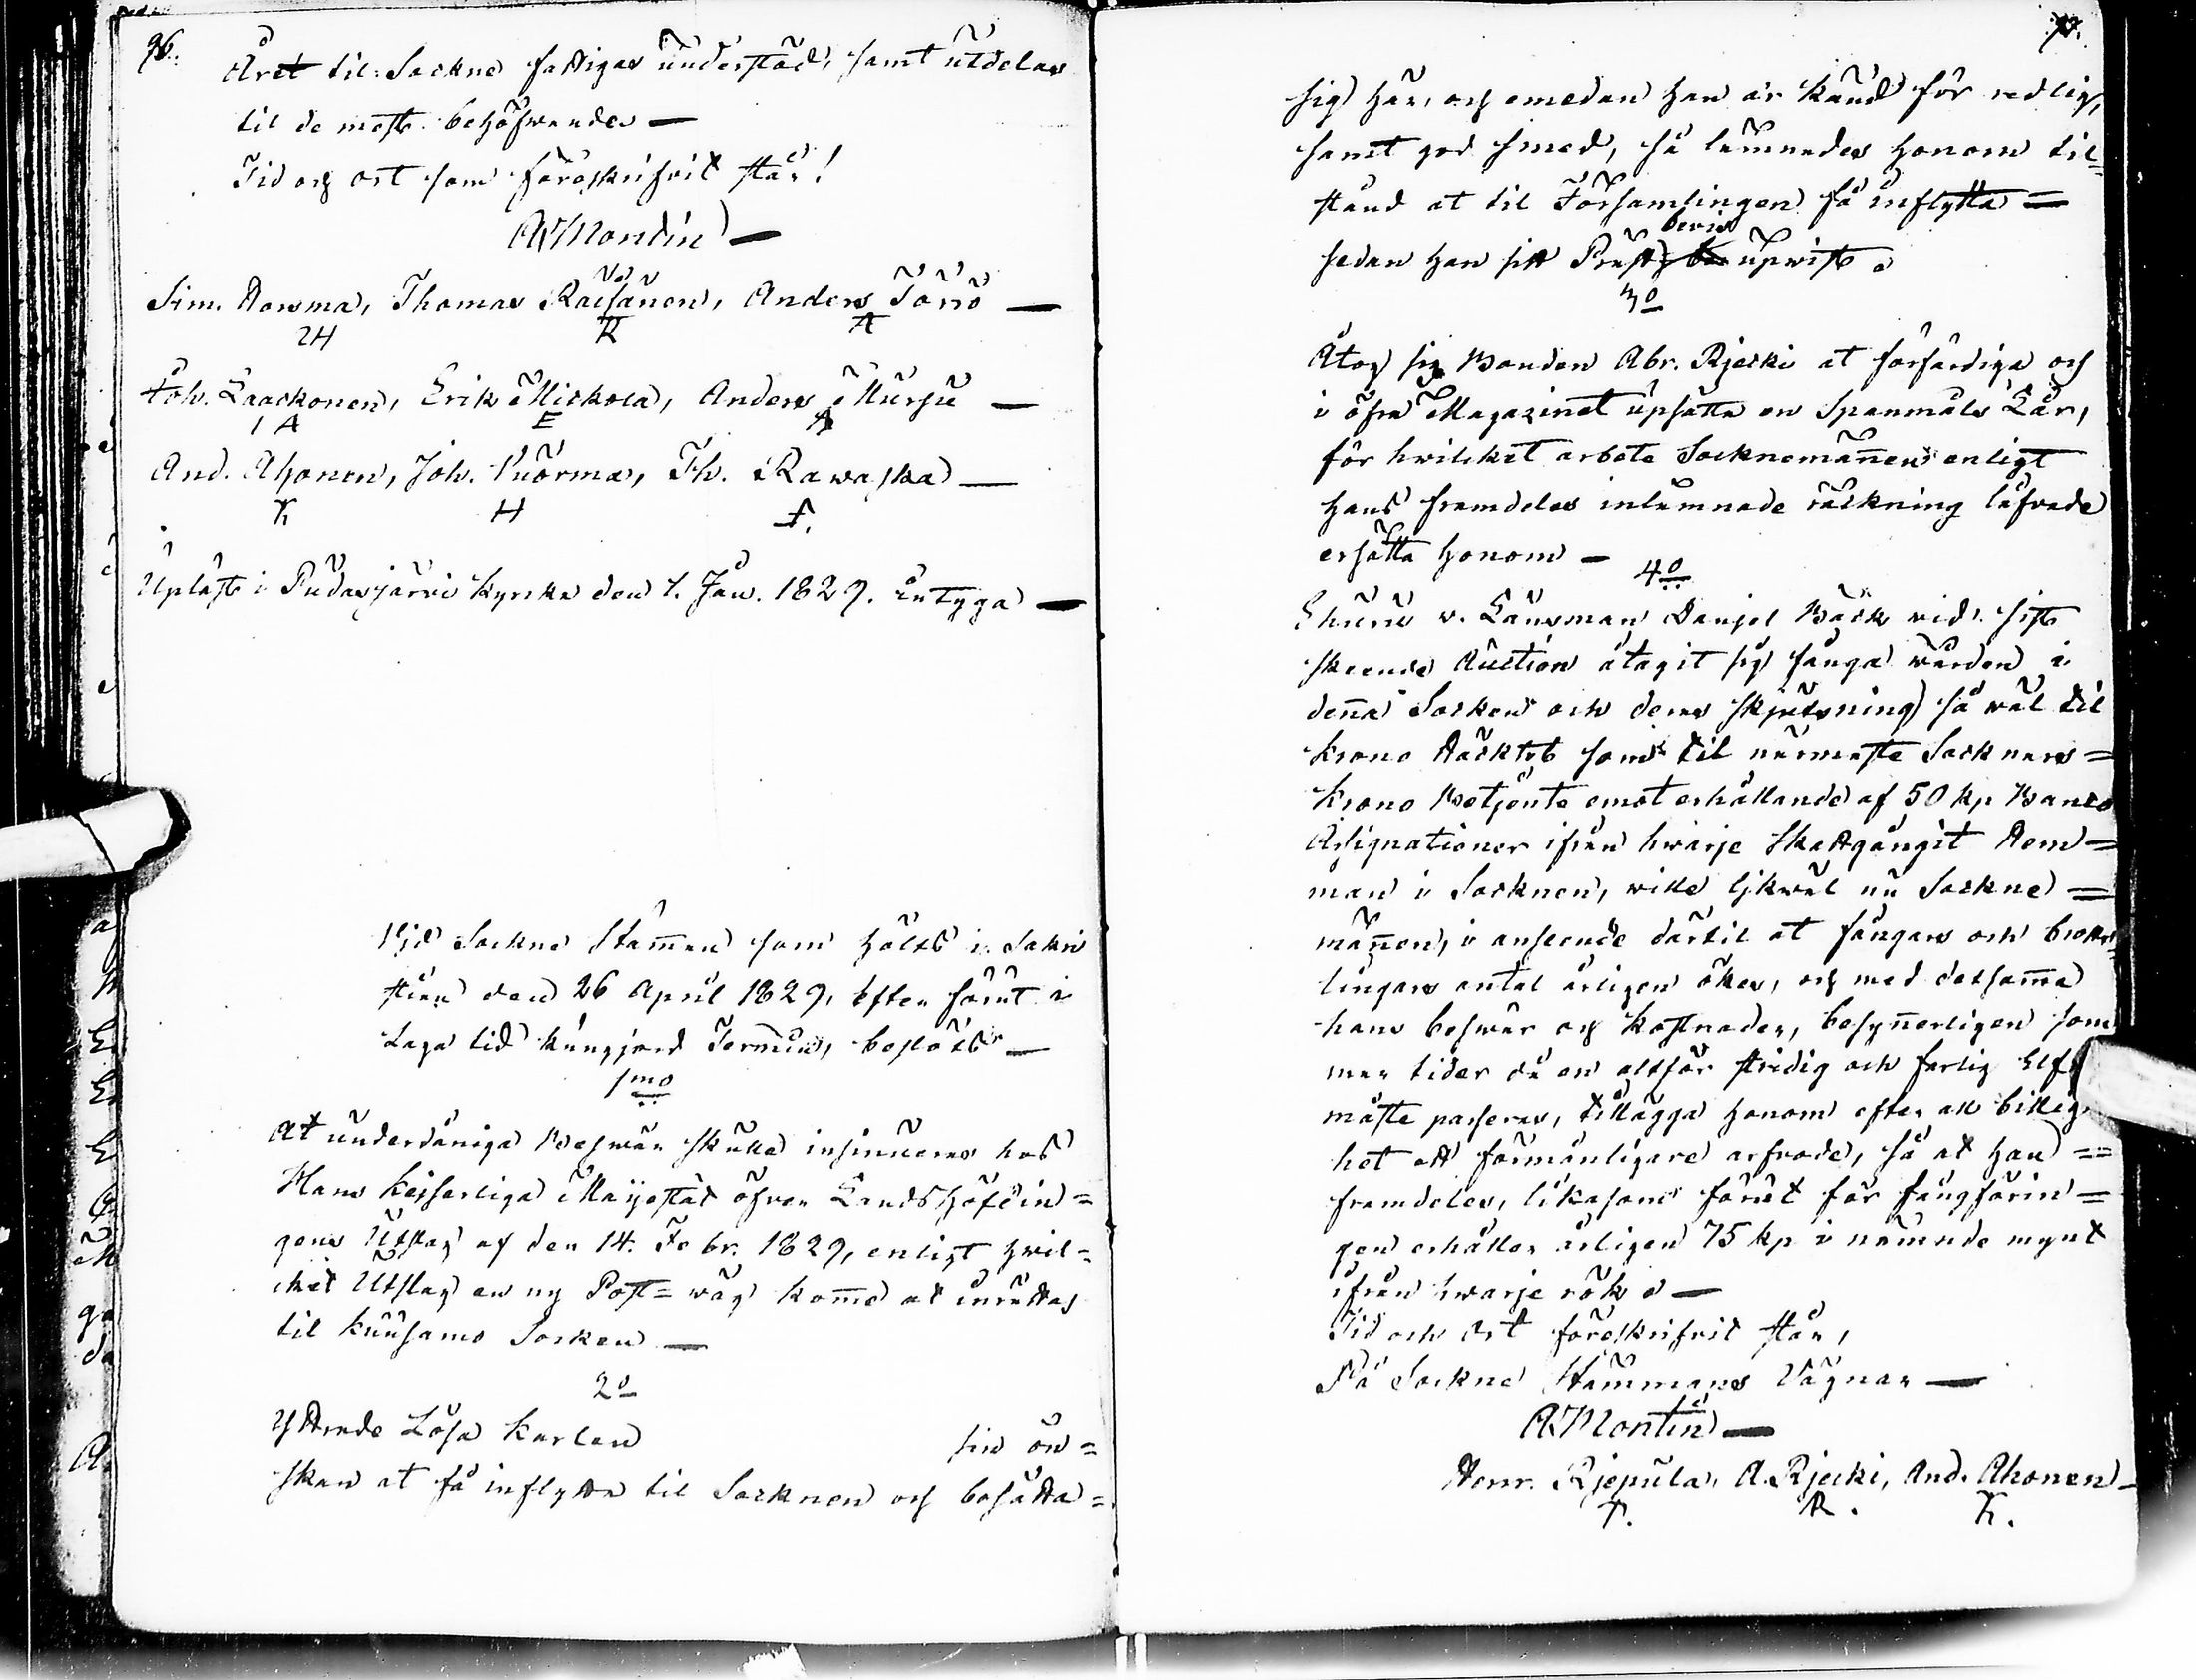 96.
Året til Sockne fattigas understöd, samt utdelas
til de mest behöfwandes —
Tid och ort som föreskrifvit står!
A Montin —
Sim. Aowma, Thomas Raisänen, Anders Törrö —
R A
Joh. Laackonen, Erik Mickola, Anders Mursu —
A E A
And. Ahonen, Joh. Puorma, Th. Rawaska —
K H
Upläst i Pudasjärvi Kyrka den 1. Jan. 1829. intyga —
Vid Sockne Stämman som hölts i Sakri
stian den 26 April 1829, efter förut i
Laga tid kungjord Termin, beslöts —
1mo
At underdåniga Beswär skulle insinueras hos
Hans Kejserliga Maijestät öfver Landshöfdin=
gens Utslag af den 14. Febr. 1829, enligt hwil=
cket Utslag en ny Post=wäg komme at inrättas
til Kuusamo Socken —
2o
Yttrade Lösa Karlen sin ön=
skan at få inflytta til Socknen och bosätta=
97.
sig här, och emedan han är känd för redlig,
samt god smed, så lämnades honom til=
stånd at til Församlingen få inflytta =
bevis
sedan han sitt Prest upwist.
3o
Åtog sig Bonden Abr. Rjecki at förfärdiga och
i öfra Magazinet upsätta en Spanmåls Lår,
för hwilcket arbete Socknemännen enligt
hans framdeles inlämnade räckning låfvade
ersätta honom —
4o
Ehuru v. Länsman Daniel Bäck vid sist
skeende Auction åtagit sig fånga wården i
denna Socken och deras skjutsning så wäl til
Krono Häcktet som til närmaste Socknars=
Krono Betjente emot erhållande af 50 kp Banco
Assignationer ifrån hwarje Skattgångit Hem=
man i Socknen, wille likwäl nu Sockne=
männen, i anseende därtil at fångars och brotts=
lingars antal årligen ökes, och med detsamma
hans beswär och kostnader, besynnerligen som
mar tider då en altför stridig och farlig Elf
måste passeras, tillägga honom efter all billig=
het ett förmånligare arfvode, så at han ==
framdeles, likasom förut för fångförin=
gen erhåller årligen 75 kp i nämnde mynt
ifrån hwarje rök. —
Tid och Ort föreskrifvit står,
På Sockne Stämmans Vägnar —
A Montin —
Henr. Rjepula, A. Rjecki, And. Ahonen —
R. K.